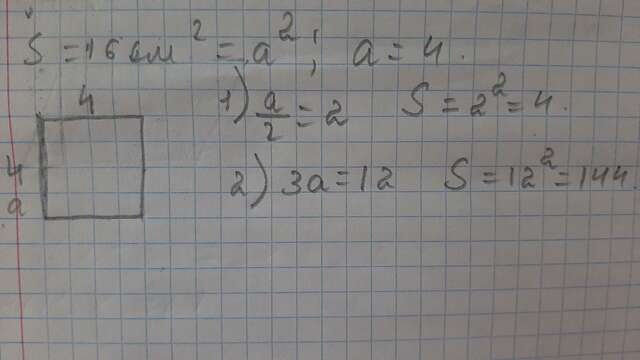 S = 16 см² = a²; a = 4.
4
1) a/2 = 2 S = 2² = 4.
4
2) 3a = 12 S = 12² = 144.
a